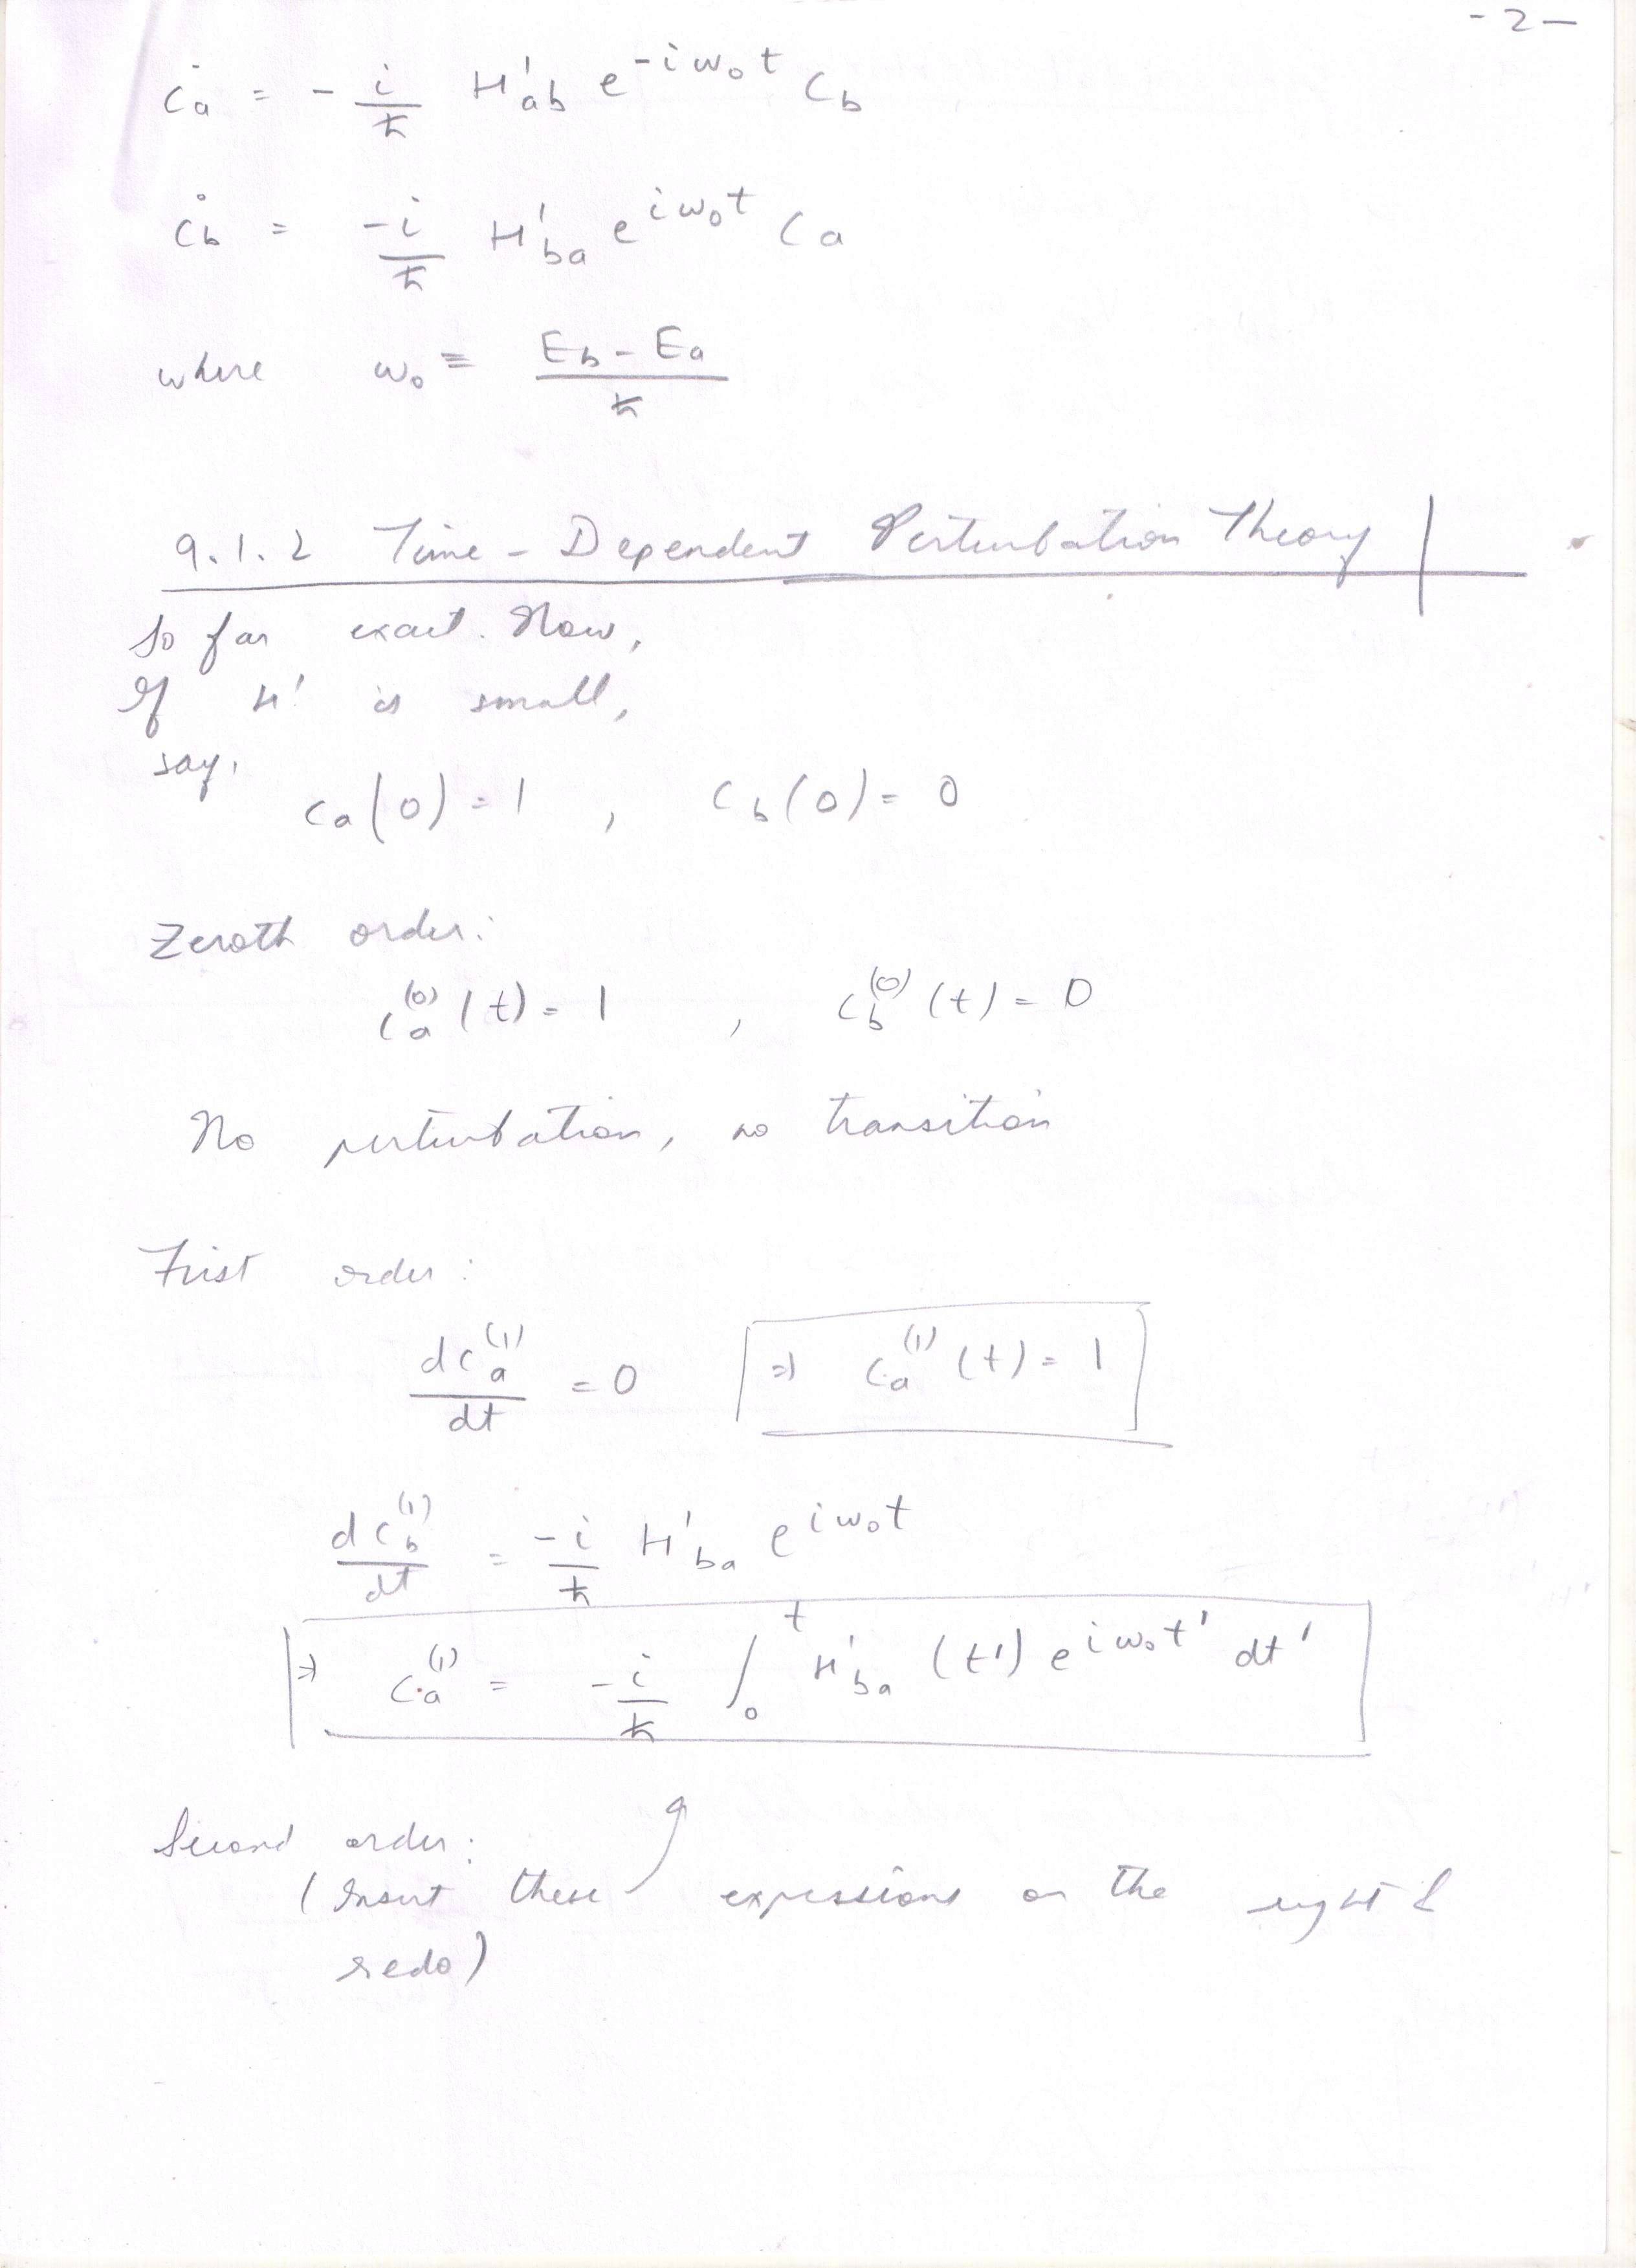 - 2 -
ċa = - i/ħ H'ab e^{-iω₀t} Cb
ċb = -i/ħ H'ba e^{iω₀t} Ca
where ω₀ = (Eb - Ea)/ħ
9.1.2 Time - Dependent Perturbation Theory
So far exact. Now,
If H' is small,
say,
Ca(0) = 1 , Cb(0) = 0
Zeroth order:
Ca^{(0)}(t) = 1 , Cb^{(0)}(t) = 0
No perturbation, no transition
First order:
dCa^{(1)}/dt = 0 => Ca^{(1)}(t) = 1
dCb^{(1)}/dt = -i/ħ H'ba e^{iω₀t}
=> Ca^{(1)} = -i/ħ ∫₀^t H'ba (t') e^{iω₀t'} dt'
Second order:
(Insert these expressions on the right &
redo)